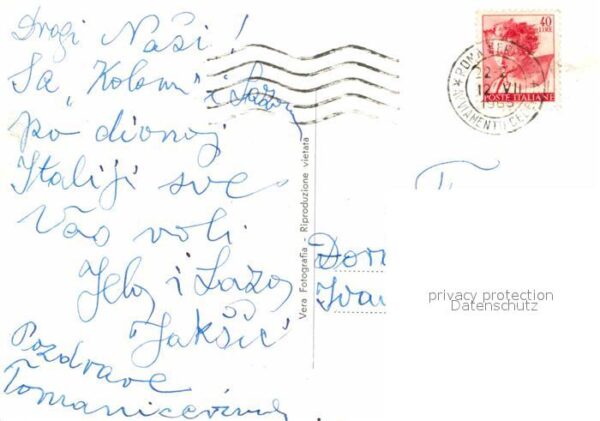 Dragi Naši!
Sa „Kolom” i Lazom
po divnoj
Italiji sve
Vas voli
Jela i Laza
Jakšić
Pozdrave
Tomanicevima
40
LIRE
POSTE ITALIANE
ROMA
22
12 VII
Vera Fotografia - Riproduzione vietata
privacy protection
Datenschutz